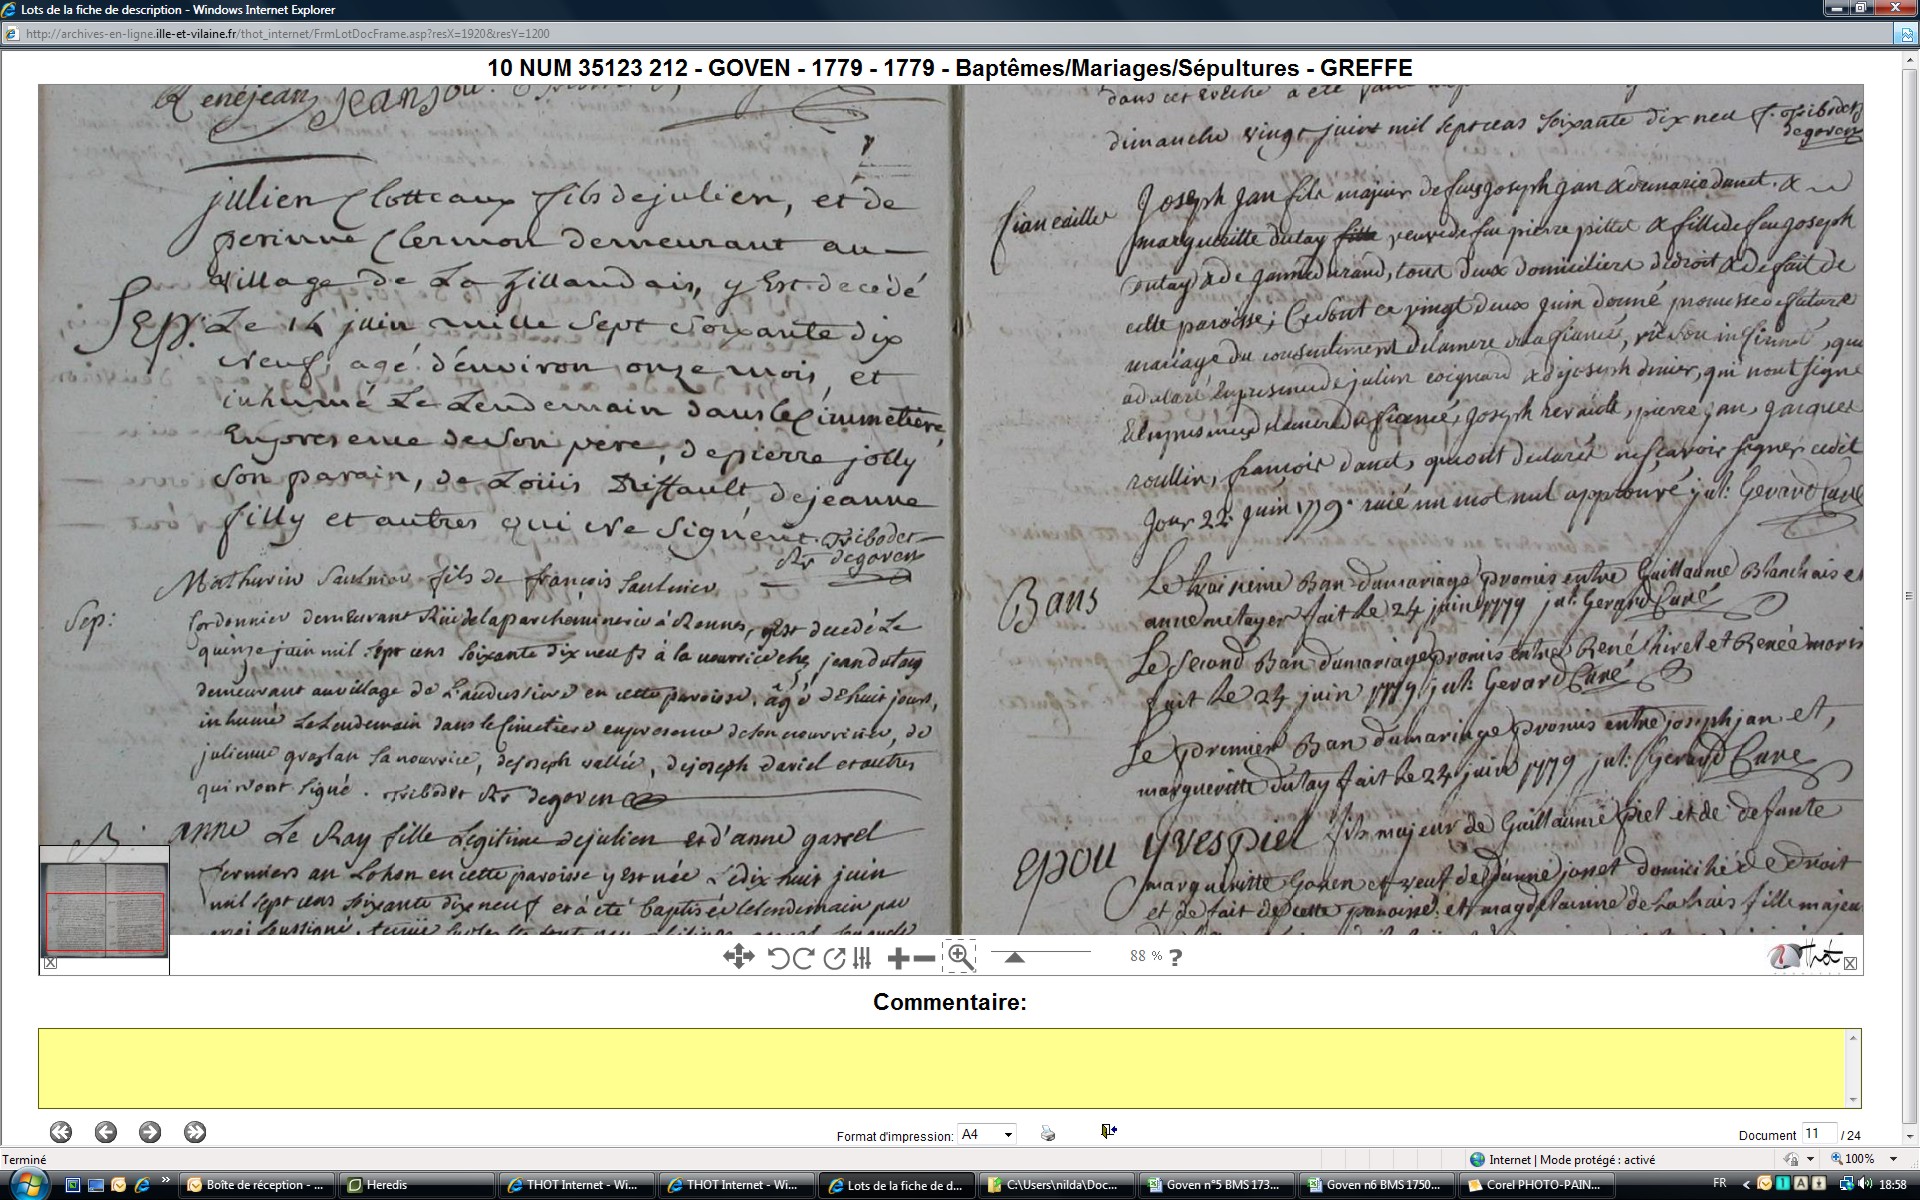 Lots de la fiche de description - Windows Internet Explorer
http://archives-en-ligne.ille-et-vilaine.fr/thot_internet/FrmLotDocFrame.asp?resX=1920&resY=1200
10 NUM 35123 212 - GOVEN - 1779 - 1779 - Baptêmes/Mariages/Sépultures - GREFFE
Renéjean
julien Clotteaux fils de julien, et de
perinne Clermon demeurant au
village de La Zillandais, y Est decédé
Sep: Le 14 juin mille Sept Soixante dix
neuf, agé d'environ onze mois, et
inhumé Le Lendemain dans le Cimmetiere,
En presence de Son pere, de pierre jolly
Son parain, de Loüis Driffault, de jeanne
filly et autres qui ne Signent. Tribodet
Rr de goven
Mathurin Saulnier fils de françois Saulnier
Sep: Cordonnier demeurant Rüe de la parcheminerie à Rennes, y Est decedé Le
quinze juin mil Sept cens Soixante dix neuf à la nourrice chez jean dutay
demeurant au village de en cette paroisse, agé de huit jours,
inhumé Le Lendemain dans le Cimetiere en presence de son nourricier, de
julienne la nourrice, de joseph vallée, de joseph David et autres
qui n'ont Signé. Tribodet Rr de goven
B: anne Le Ray fille Légitime de julien et d'anne gassel
fermiers au Lohon en cette paroisse y est née Le dix huit juin
mil sept cens Soixante dix neuf et a été baptisée le lendemain par
dimanche vingt juin mil sept cens soixante dix neu f. Tribodet
de goven
fiancaille Joseph Jan fils majeur de feu Joseph Jan & de marie danet. &
margueritte dutay fille veuve de feu pierre pillet & fille de feu Joseph
Dutay & de Jeanne durand, tous deux domiciliers de droit & de fait de
cette paroisse; Ce sont ce vingt deux juin donné promesse de future
mariage du consentement de la mere de la fiancé, infirmé, qui
a declaré en presence de julien coignard & de joseph dinier, qui n'ont signé
& en presence de la mere du fiancé, Joseph, pierre jan, jacques
roullin, françois danet, qui ont declaré ne sçavoir signer cedit
Jour 22e juin 1779. raié un mot nul approuvé jul: Gerard Curé
Bans Le troisieme Ban du mariage promis entre Guillaume Blanchais et
anne métayer fait le 24 juin 1779 jul: Gerard Curé
Le Second Ban du mariage promis entre René hivet et Renée moris
fait le 24 juin 1779 jul: Gerard Curé
Le premier Ban du mariage promis entre joseph jan et,
margueritte dutay fait le 24 juin 1779 jul: Gerard Curé
Epou yves piel fils majeur de Guillaume piel et de defunte
margueritte Goven et veuf de jeanne jouet domicilié de droit
et de fait de cette paroisse; et magdelainne de La hais fille majeu
88 % ?
Thot
Commentaire:
Format d'impression: A4
Document 11 / 24
Terminé
Internet | Mode protégé : activé
100%
Boîte de réception - ...
Heredis
THOT Internet - Wi...
THOT Internet - Wi...
Lots de la fiche de d...
C:\Users\nilda\Doc...
Goven n°5 BMS 173...
Goven n6 BMS 1750...
Corel PHOTO-PAIN...
FR
18:58